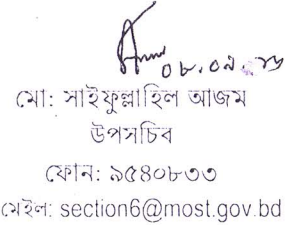 ০৮.০৯.১৬
মো: সাইফুল্লাহিল আজম
উপসচিব
ফোন: ৯৫৪০৮৩৩
মেইল: section6@most.gov.bd